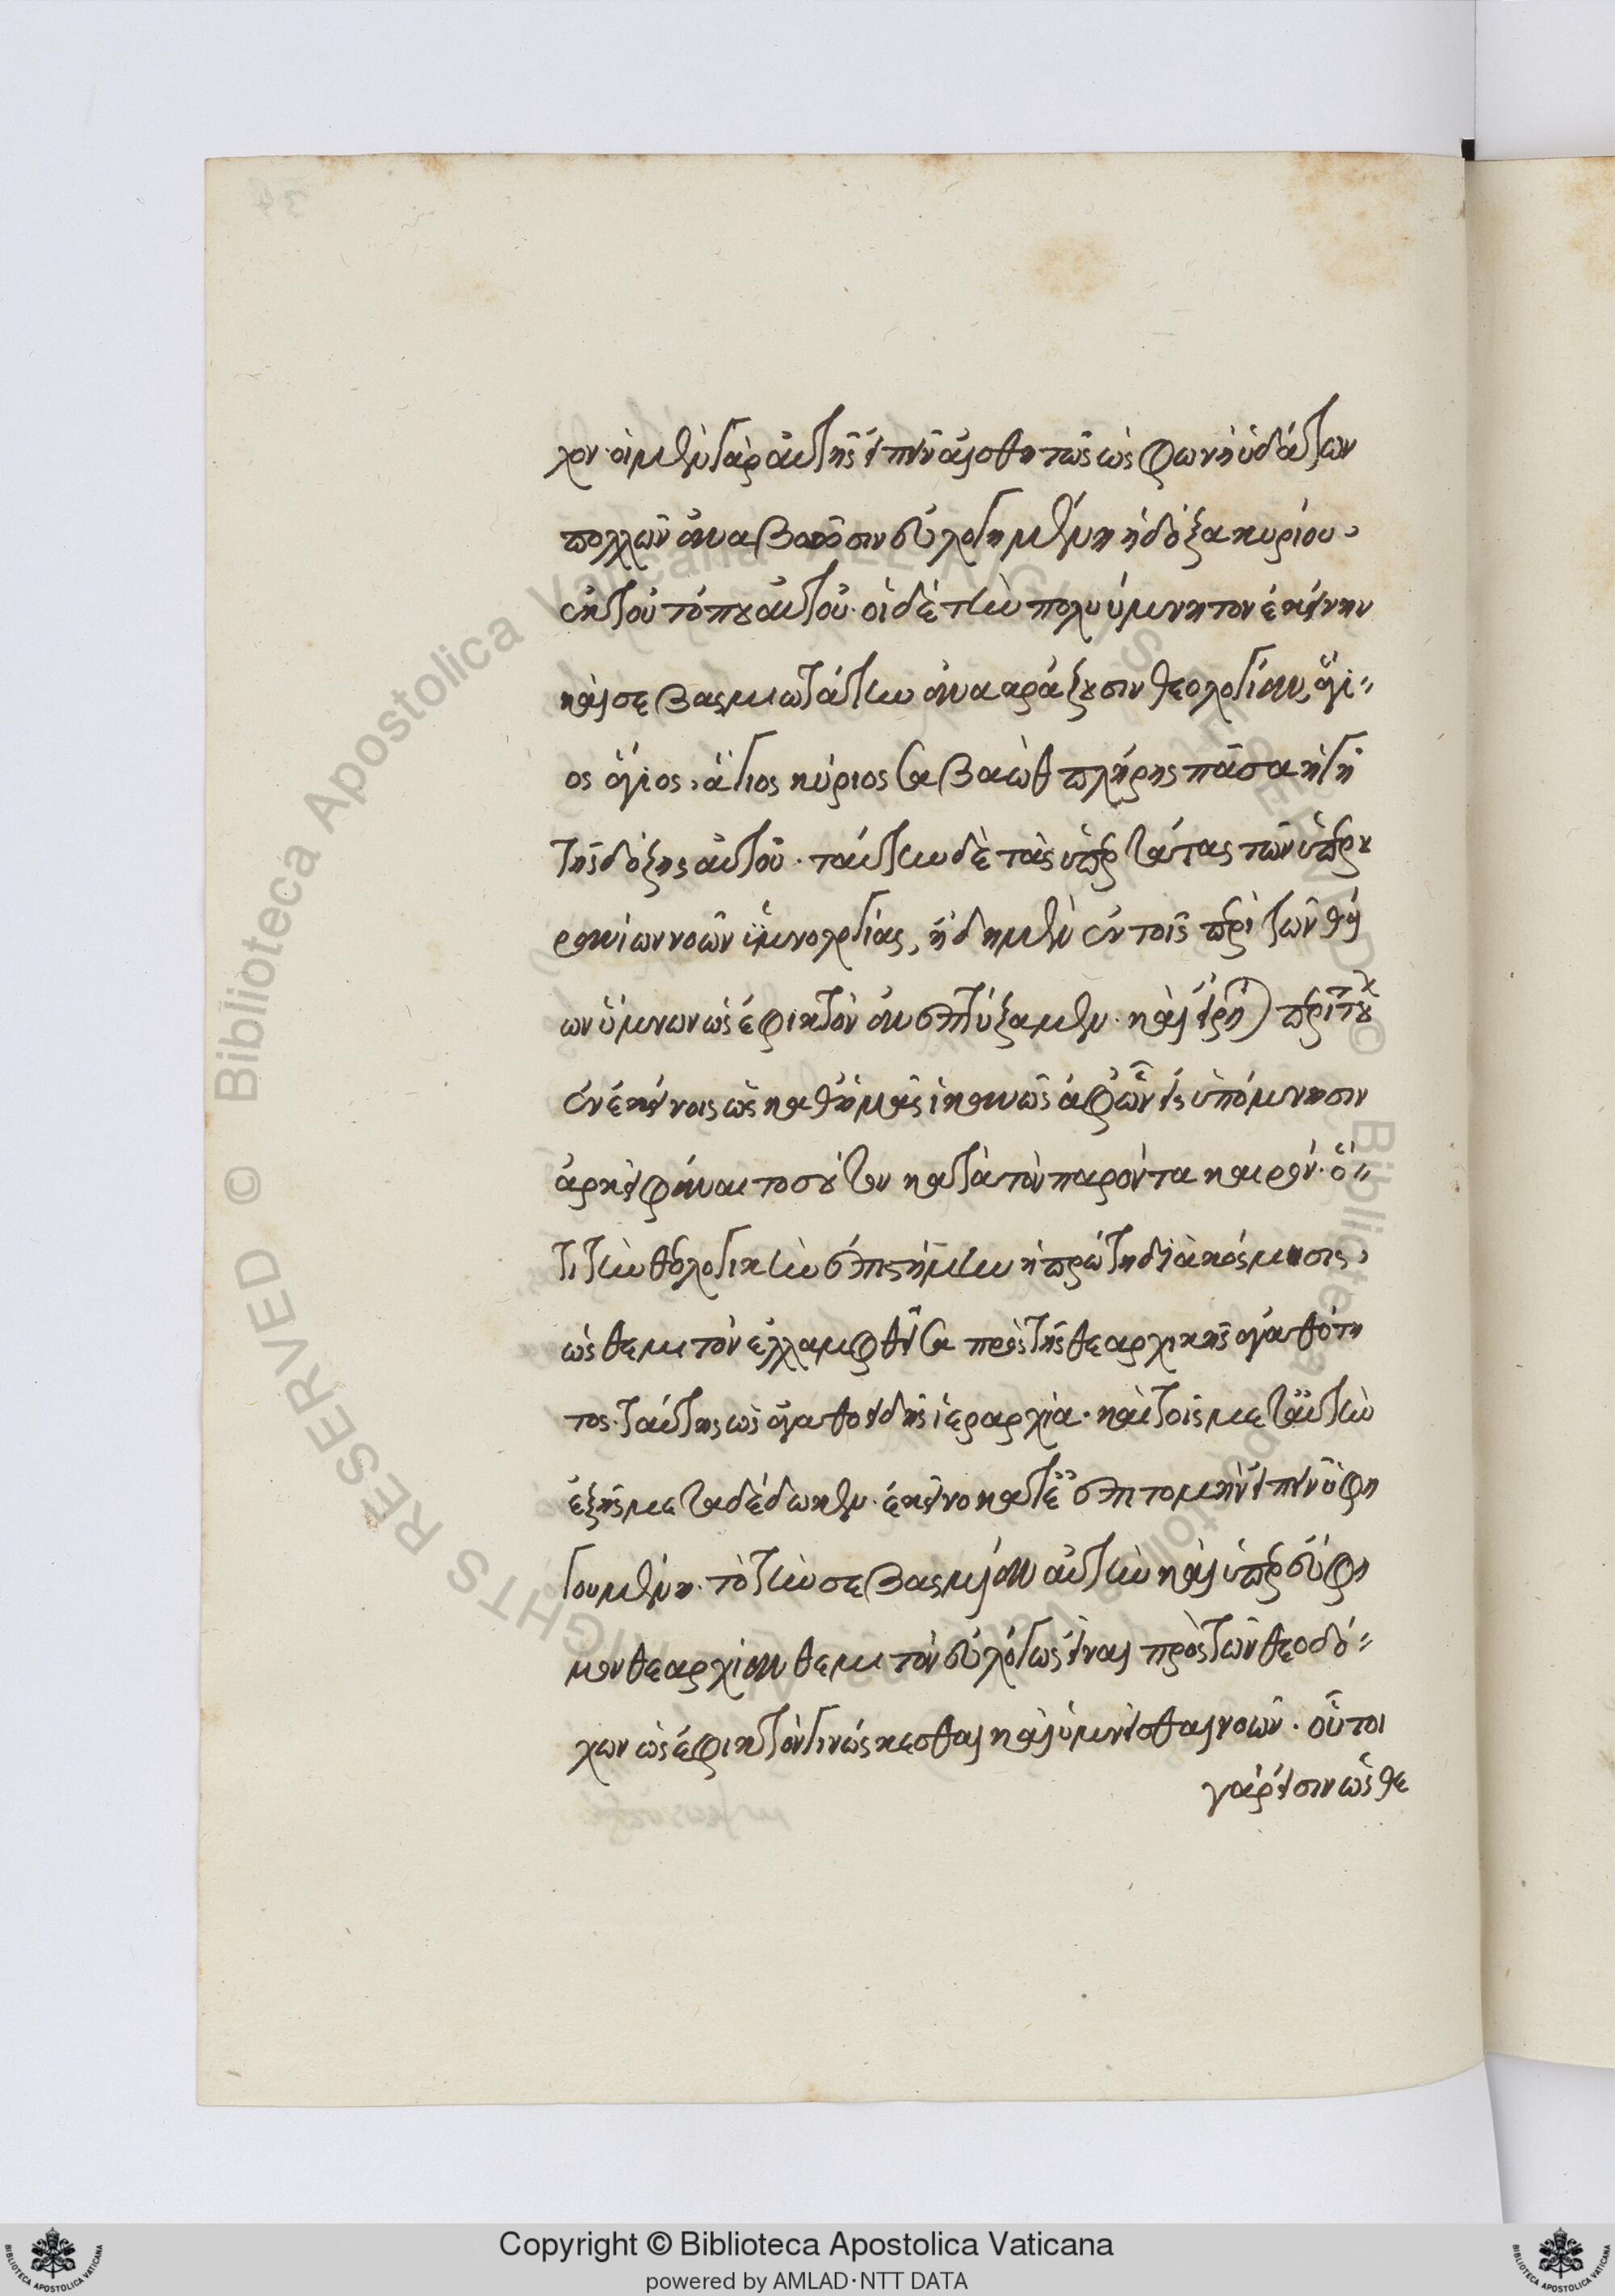 χον· οἱ μὲν γὰρ αὐτῆς εἰπεῖν αἰσθητῶς ὡς φωνὴ ὑδάτων
πολλῶν ἀναβοῶσιν εὐλογημένη ἡ δόξα κυρίου,
ἐκ τοῦ τόπου αὐτοῦ· οἱ δὲ τὴν πολυύμνητον ἐκείνην
καὶ σεβασμιωτάτην ἀνακράζουσιν θεολογίαν, ἅγι-
ος ἅγιος, ἅγιος κύριος σαβαὼθ πλήρης πᾶσα ἡ γῆ
τῆς δόξης αὐτοῦ. ταύτην δὲ τὰς ὑπερτάτας τῶν ὑπερου
ρανίων νοῶν ὑμνολογίας, ἤδη μὲν ἐν τοῖς περὶ τῶν θεί
ων ὕμνων ὡς ἐφικτὸν ἀνεπτύξαμεν· καὶ εἴρηται περὶ τούτων
ἐν ἐκείνοις ὡς καθ' ἡμᾶς ἱκανῶς ἀφ' ὧν εἰς ὑπόμνησιν
ἀρκεῖ φάναι τοσοῦτον κατὰ τὸν παρόντα καιρόν· ὅ-
τι τὴν θεολογικὴν ἐπιστήμην ἡ πρώτη διακόσμησις,
ὡς θεμιτὸν ἐλλαμφθεῖσα πρὸς τῆς θεαρχικῆς ἀγαθότη
τος· ταύτης ὡς ἀγαθοειδὴς ἱεραρχία· καὶ τοῖς μετ' αὐτὴν
ἑξῆς μεταδέδωκεν· ἐκεῖνο κατ' ἐπιτομὴν εἰπεῖν ὑφη
γουμένη· τὸ τὴν σεβασμίαν αὐτὴν καὶ ὑπερεύφη
μον θεαρχίαν θεμιτὸν εὐλόγως εἶναι πρὸς τῶν θεοδό-
χων ὡς ἐφικτὸν γινώσκεσθαι καὶ ὑμνεῖσθαι νοῶν· οὗτοι
γάρ εἰσιν ὡς θε
Copyright © Biblioteca Apostolica Vaticana
powered by AMLAD·NTT DATA